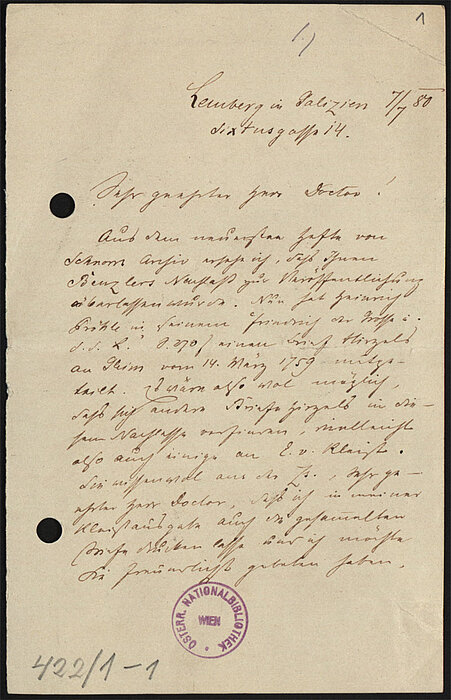 1
1)
Lemberg in Galizien 7/7 80
Sixtusgasse 14.
Sehr geehrter Herr Doctor!
Aus dem neuesten Hefte von
Schnorrs Archiv ersehe ich, daß Ihnen
Benzlers Nachlaß zur Veröffentlichung
überlassen wurde. Nun hat Heinrich
Pröhle in seinem "Friedrich der Große u.
d. d. L." S. 270/ einen Brief Hirzels
an Gleim vom 14. März 1759 mitge-
teilt. Es wäre also wol möglich,
daß sich andere Briefe Hirzels in die-
sem Nachlasse vorfinden, vielleicht
also auch einige an E. v. Kleist.
Sie wissen wol aus der , sehr ge-
ehrter Herr Doctor, daß ich in meiner
Kleistausgabe auch die gesammelten
Briefe drucken lasse und ich möchte
Sie freundlichst gebeten haben,
ÖSTERR. NATIONALBIBLIOTHEK
WIEN
422/1-1